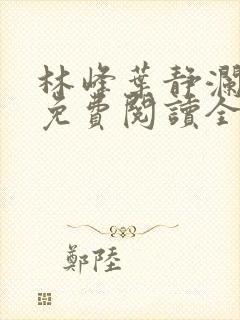 林峰葉靜瀾
免費閱讀全
鄭陸